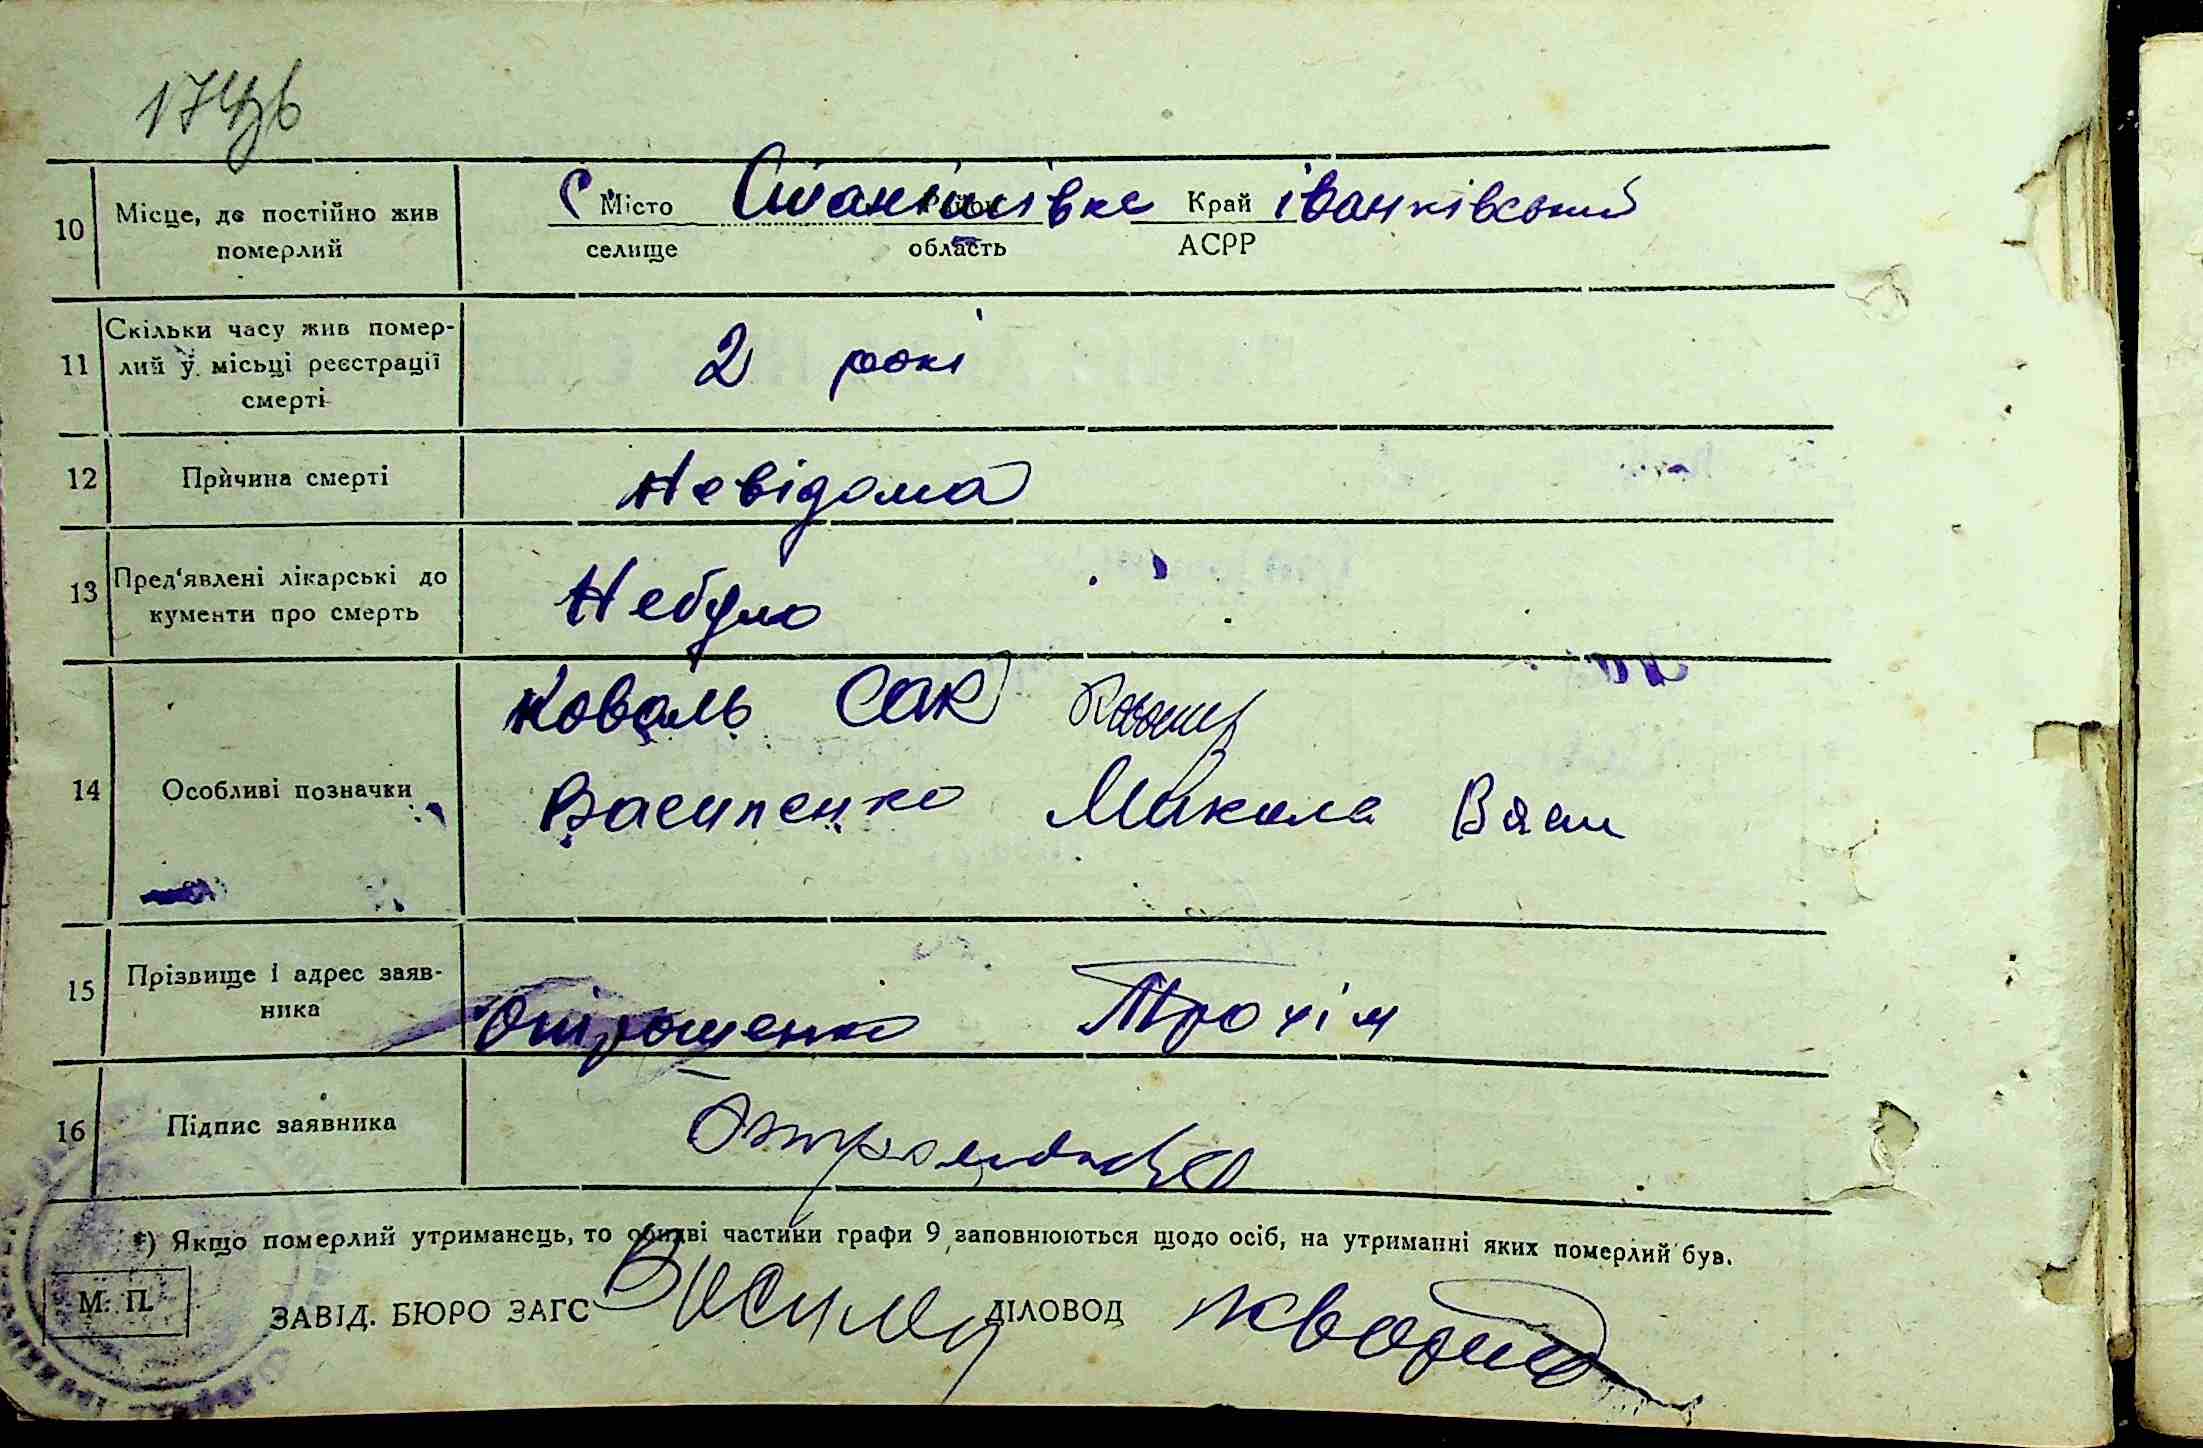 174зв
10 Місце, де постійно жив померлий
с Місто Станішівка Район Край іванківський
селище область АСРР
11 Скільки часу жив помер-
лий у місьці реєстрації
смерті
2 рокі
12 Причина смерті
Невідома
13 Пред'явлені лікарські до
кументи про смерть
Небуло
14 Особливі позначки
Коваль Сак
Василенко Микола Васи
15 Прізвище і адрес заяв-
ника
Отрошенко Трохім
16 Підпис заявника
*) Якщо померлий утриманець, то обидві частини графи 9 заповнюються щодо осіб, на утриманні яких померлий був.
М. П. ЗАВІД. БЮРО ЗАГС ДІЛОВОД